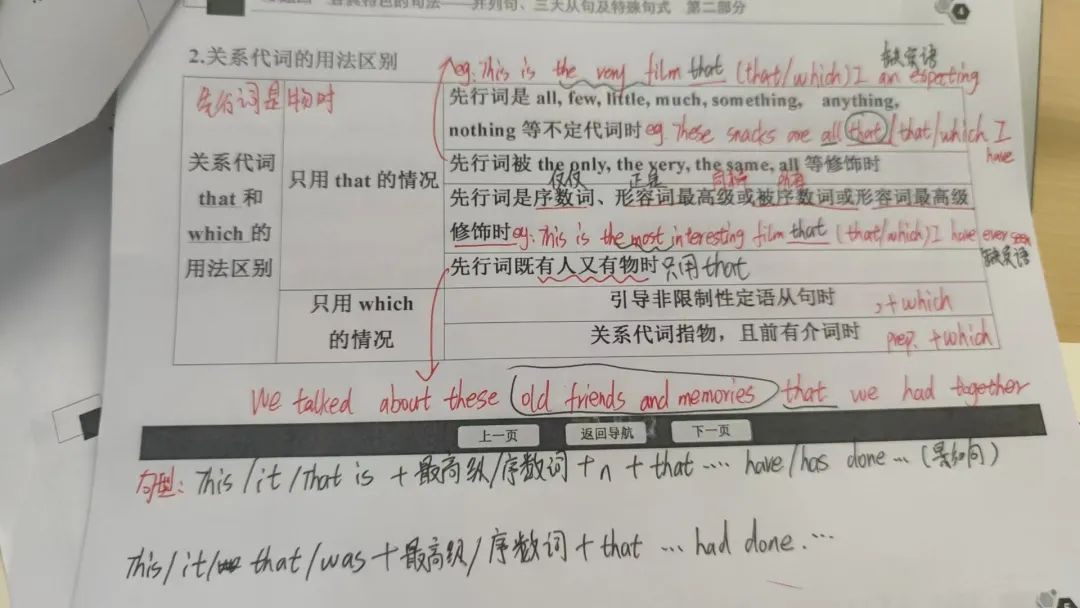 各具特色的句法——并列句、三大从句及特殊句式 第二部分
2.关系代词的用法区别
eg. This is the very film that (that/which) I am expecting
缺宾语
先行词是物时
关系代词
that 和
which 的
用法区别
只用 that 的情况
先行词是 all, few, little, much, something, anything,
nothing 等不定代词时 eg. These snacks are all that (that/which I
have
先行词被 the only, the very, the same, all 等修饰时
仅仅 正是 所有
先行词是序数词、形容词最高级或被序数词或形容词最高级
修饰时 eg. This is the most interesting film that (that/which) I have ever seen
缺宾语
先行词既有人又有物时 只用that
只用 which
的情况
引导非限制性定语从句时 , + which
关系代词指物，且前有介词时 prep. + which
We talked about these old friends and memories that we had together
上一页 返回导航 下一页
句型: This / it / That is + 最高级/序数词 + n + that .... have/has done ...
This / it / that / was + 最高级/ 序数词 + that ... had done. ...